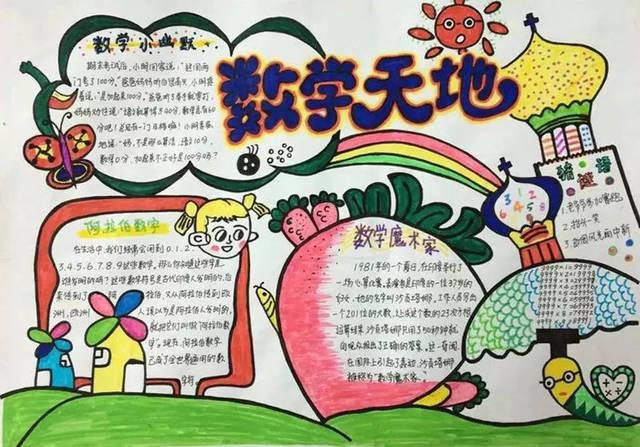 数学天地
数学小幽默
期末考试后,小明回家说:"这回两
门考了100分。"爸爸妈妈听后很高兴。小明接
妈妈劝住说:"语文就算得了40分,数学还有60
分呢!总还有一门及格嘛!"小明委屈
地说:"妈,不是那么算法,语文10分,
数学0分,加起来不正好是100分吗?"
猜谜语
2.抬头一笑
阿拉伯数字
在生活中,我们经常会用到0.1.2.
3.4.5.6.7.8.9这些数字。那么你知道这些字是
谁发明的吗?这些数字符号是古代印度人发明的,后
来传到了阿拉伯,又从阿拉伯传到欧
洲,欧洲人误以为是阿拉伯人发明的,
就把它们叫做"阿拉伯数
字"。现在,阿拉伯数字
已成了全世界通用的数
字符
数学魔术家
1981年的一个夏日,在印度举行了
一场心算比赛。表演者是印度的一位37岁的
妇女,她的名字叫沙贡塔娜。工作人员写出
一个201位的大数,让求这个数的23次方根
运算结果,沙贡塔娜只用了50秒钟就
向观众报出了正确的答案。这一奇闻,
在国际上引起了轰动,沙贡塔娜
被称为"数学魔术家"。